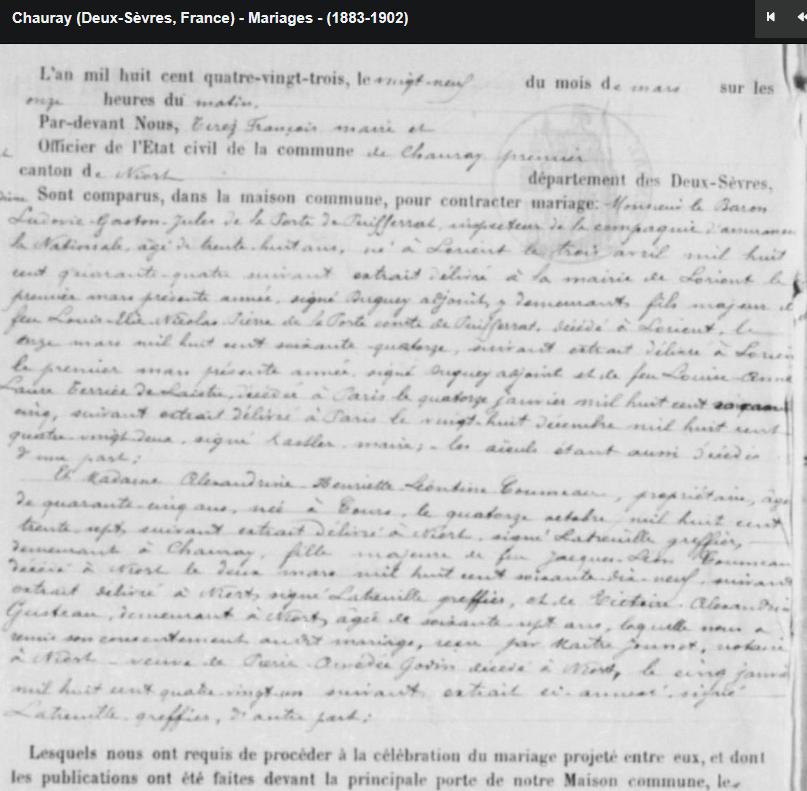 Chauray (Deux-Sèvres, France) - Mariages - (1883-1902)
L'an mil huit cent quatre-vingt-trois, le vingt-neuf du mois de mars sur les
onze heures du matin,
Par-devant Nous, François maire et
Officier de l'Etat civil de la commune de Chauray premier
canton de Niort département des Deux-Sèvres,
Sont comparus, dans la maison commune, pour contracter mariage: Monsieur le Baron
Ludovic Gaston Jules de la Porte de Puifferrat, inspecteur de la compagnie d'assurances
la Nationale, âgé de trente-huit ans, né à Lorient le trois avril mil huit
cent quarante-quatre suivant extrait délivré à la mairie de Lorient le
premier mars présente année, signé adjoint, y demeurant, fils majeur de
feu Louis Nicolas Pierre de la Porte comte de Puifferrat, décédé à Lorient, le
onze mars mil huit cent soixante-quatorze, suivant extrait délivré à Lorient
le premier mars présente année, signé adjoint et de feu Louise Anne
Laure de décédée à Paris le quatorze janvier mil huit cent
cinq, suivant extrait délivré à Paris le vingt-huit décembre mil huit cent
quatre-vingt-deux, signé maire, les aïeuls étant aussi décédés
d'une part;
Et Madame Alexandrine Henriette Léontine propriétaire, âgée
de quarante-cinq ans, née à Tours, le quatorze octobre mil huit cent
trente-sept, suivant extrait délivré à Niort, signé Latreuille greffier,
demeurant à Chauray, fille majeure de feu Jacques Léon
décédé à Niort le deux mars mil huit cent soixante-dix-neuf, suivant
extrait délivré à Niort, signé Latreuille greffier, et de Victoire Alexandrine
demeurant à Niort, âgée de soixante-sept ans, laquelle nous a
remis son consentement audit mariage, reçu par Maître notaire
à Niort veuve de Pierre Amédée Godin décédé à Niort, le cinq janvier
mil huit cent quatre-vingt-un suivant extrait ci-annexé signé
Latreuille greffier, d'autre part;
Lesquels nous ont requis de procéder à la célébration du mariage projeté entre eux, et dont
les publications ont été faites devant la principale porte de notre Maison commune, les